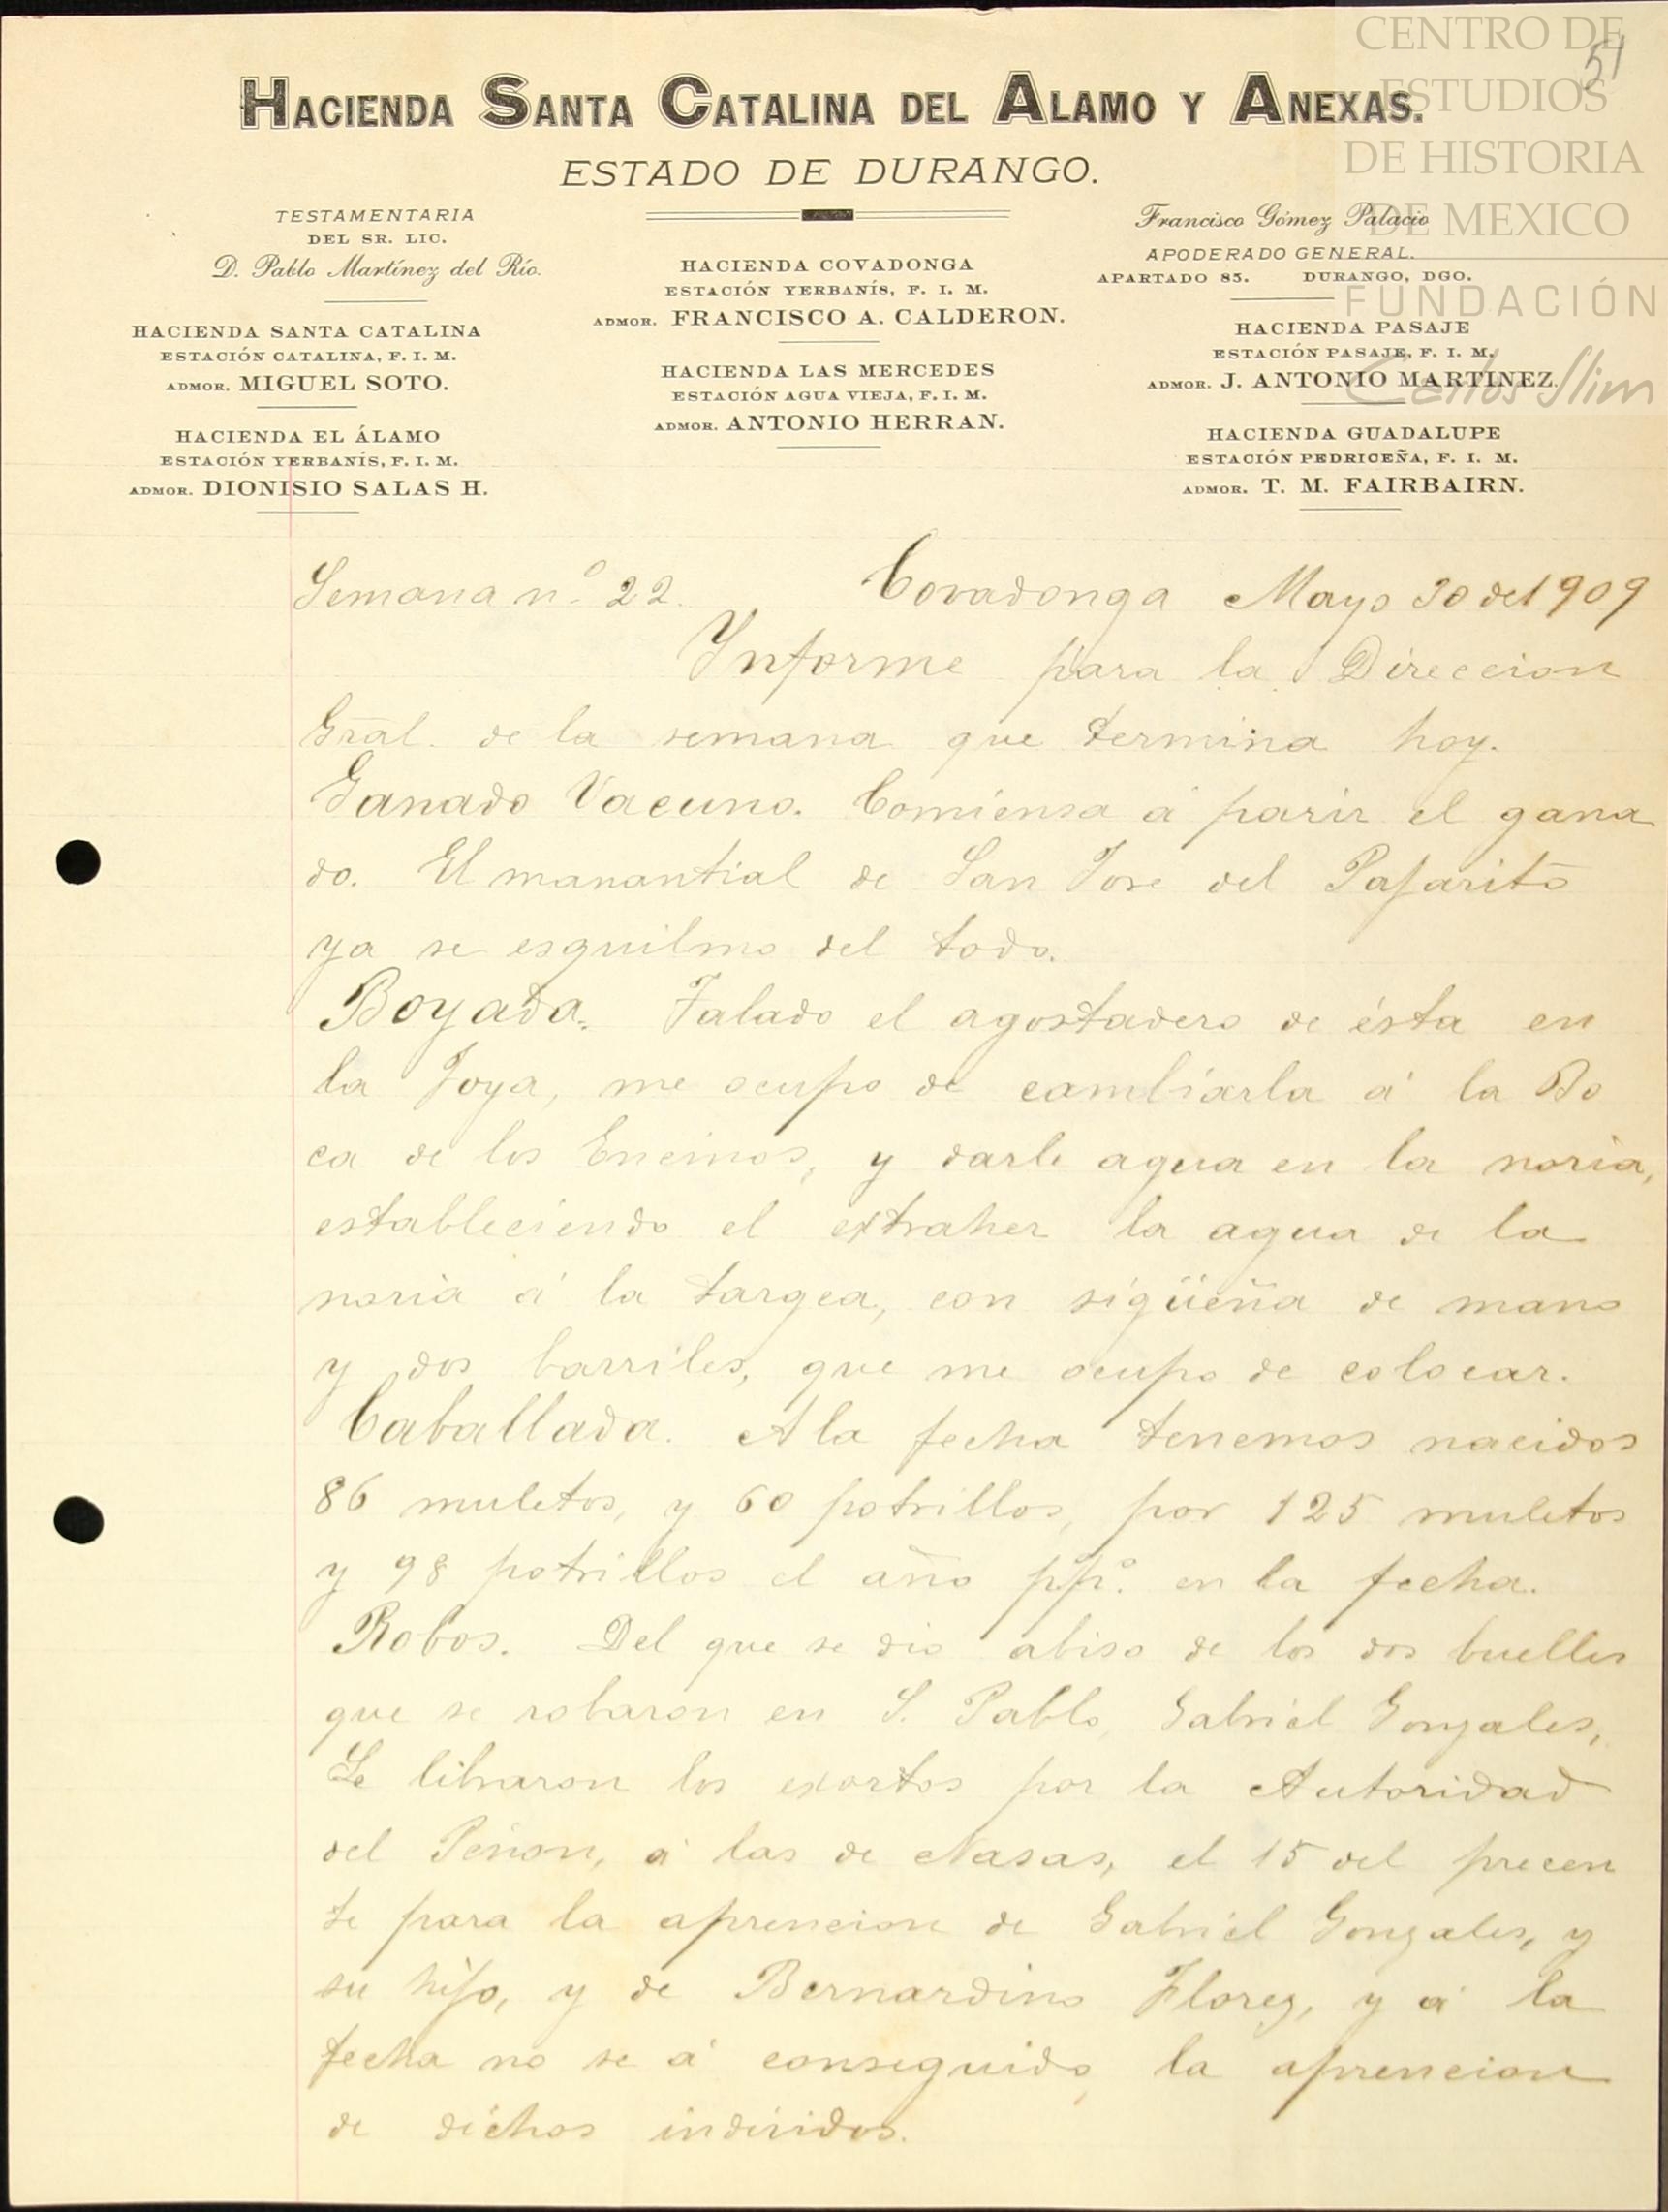 CENTRO DE
ESTUDIOS
DE HISTORIA
DE MEXICO
FUNDACIÓN
Carlos Slim
51
HACIENDA SANTA CATALINA DEL ALAMO Y ANEXAS.
ESTADO DE DURANGO.
TESTAMENTARIA
DEL SR. LIC.
D. Pablo Martínez del Río.
HACIENDA SANTA CATALINA
ESTACIÓN CATALINA, F. I. M.
ADMOR. MIGUEL SOTO.
HACIENDA EL ÁLAMO
ESTACIÓN YERBANÍS, F. I. M.
ADMOR. DIONISIO SALAS H.
HACIENDA COVADONGA
ESTACIÓN YERBANÍS, F. I. M.
ADMOR. FRANCISCO A. CALDERON.
HACIENDA LAS MERCEDES
ESTACIÓN AGUA VIEJA, F. I. M.
ADMOR. ANTONIO HERRAN.
Francisco Gómez Palacio
APODERADO GENERAL.
APARTADO 85. DURANGO, DGO.
HACIENDA PASAJE
ESTACIÓN PASAJE, F. I. M.
ADMOR. J. ANTONIO MARTINEZ.
HACIENDA GUADALUPE
ESTACIÓN PEDRICEÑA, F. I. M.
ADMOR. T. M. FAIRBAIRN.
Semana nº 22. Covadonga Mayo 30 de 1909
Ynforme para la Direccion
Gral. de la semana que termina hoy.
Ganado Vacuno. Comiensa á parir el gana
do. El manantial de San Jose del Pajarito
ya se esquilmo del todo.
Boyada. Talado el agostadero de ésta en
la Joya, me ocupo de cambiarla á la Bo
ca de los Encinos, y darle agua en la noria,
estableciendo el extraher la agua de la
noria á la targea, con sigüeña de mano
y dos barriles, que me ocupo de colocar.
Caballada. A la fecha tenemos nacidos
86 muletos, y 60 potrillos, por 125 muletos
y 98 potrillos el año ppº. en la fecha.
Robos. Del que se dio abiso de los dos buelles
que se robaron en S. Pablo, Gabriel Gonzales,
Se libraron los exortos por la Autoridad
del Peñon, á las de Nasas, el 15 del precen
te para la aprencion de Gabriel Gonzales, y
su hijo, y de Bernardino Florez, y á la
fecha no se á conseguido la aprencion
de dichos individos.